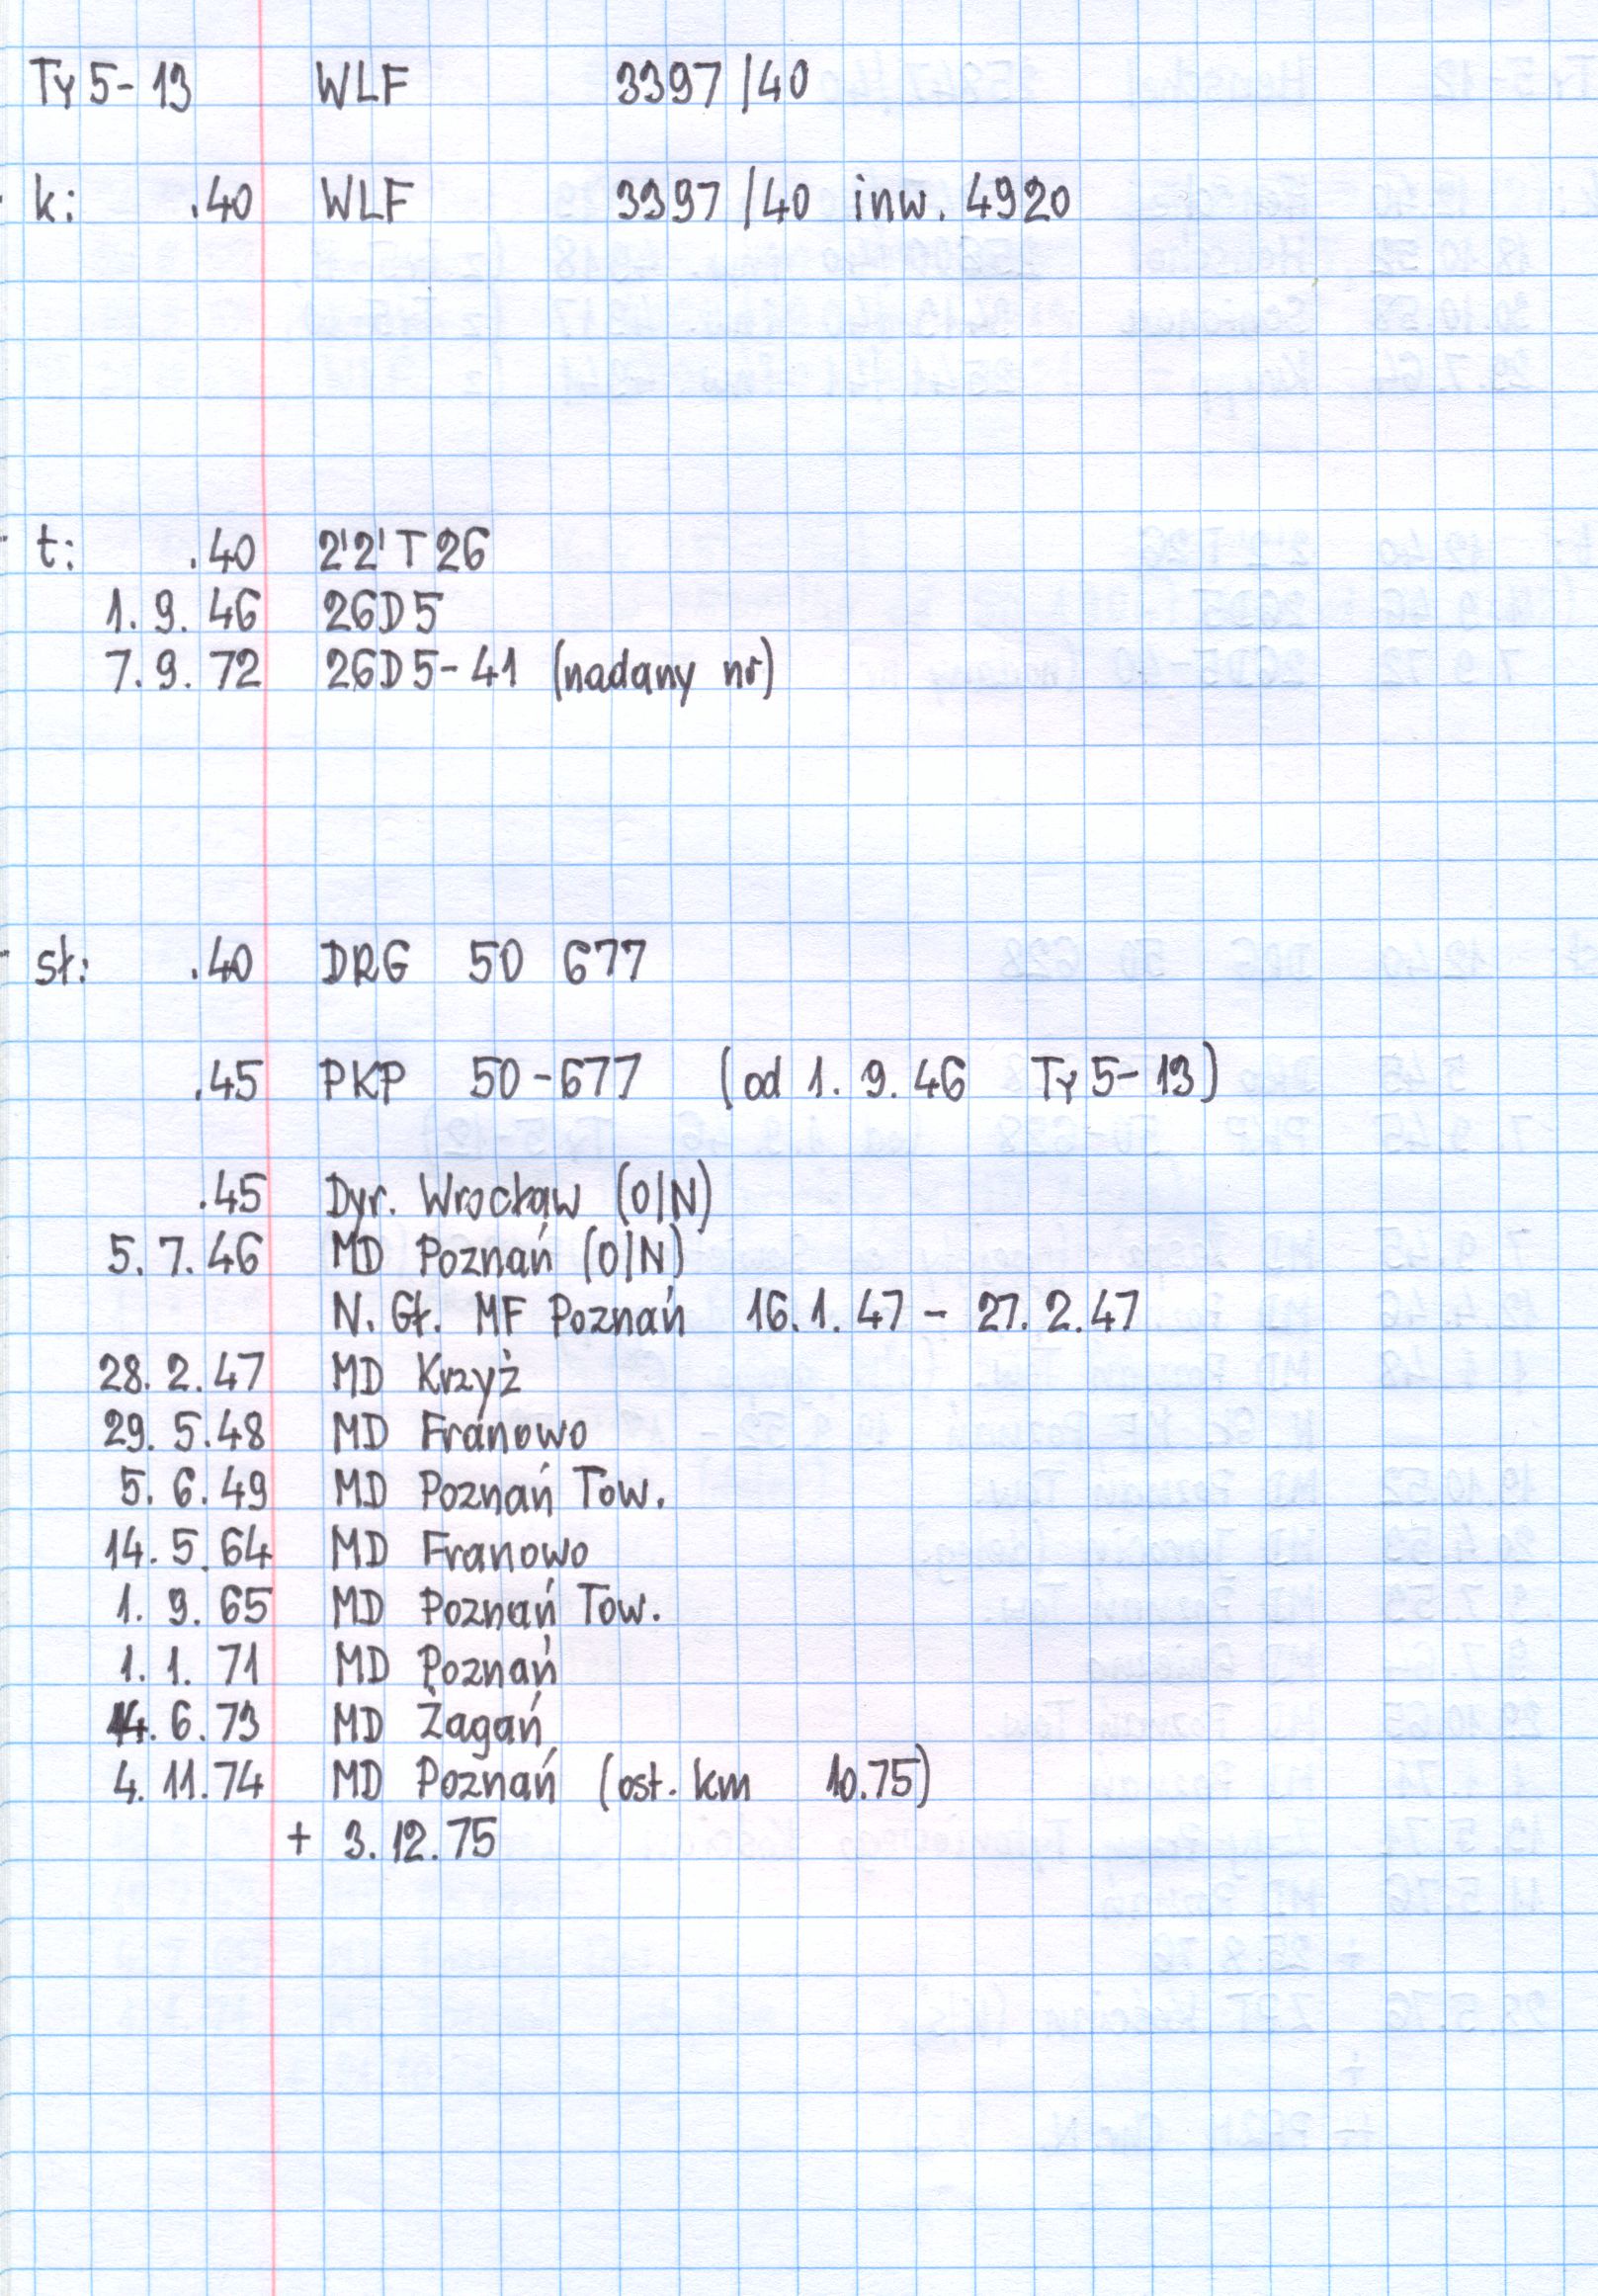 Ty5-13 WLF 3397/40
k: .40 WLF 3397/40 inw. 4920
t: .40 2'2'T26
1.9.46 26D5
7.9.72 26D5-41 (nadany nr)
sł: .40 DRG 50 677
.45 PKP 50-677 (od 1.9.46 Ty5-13)
.45 Dyr. Wrocław (O/N)
5.7.46 MD Poznań (O/N)
N. Gł. MF Poznań 16.1.47 - 27.2.47
28.2.47 MD Krzyż
29.5.48 MD Franowo
5.6.49 MD Poznań Tow.
14.5.64 MD Franowo
1.9.65 MD Poznań Tow.
1.1.71 MD Poznań
14.6.73 MD Żagań
4.11.74 MD Poznań (ost. km 10.75)
+ 3.12.75